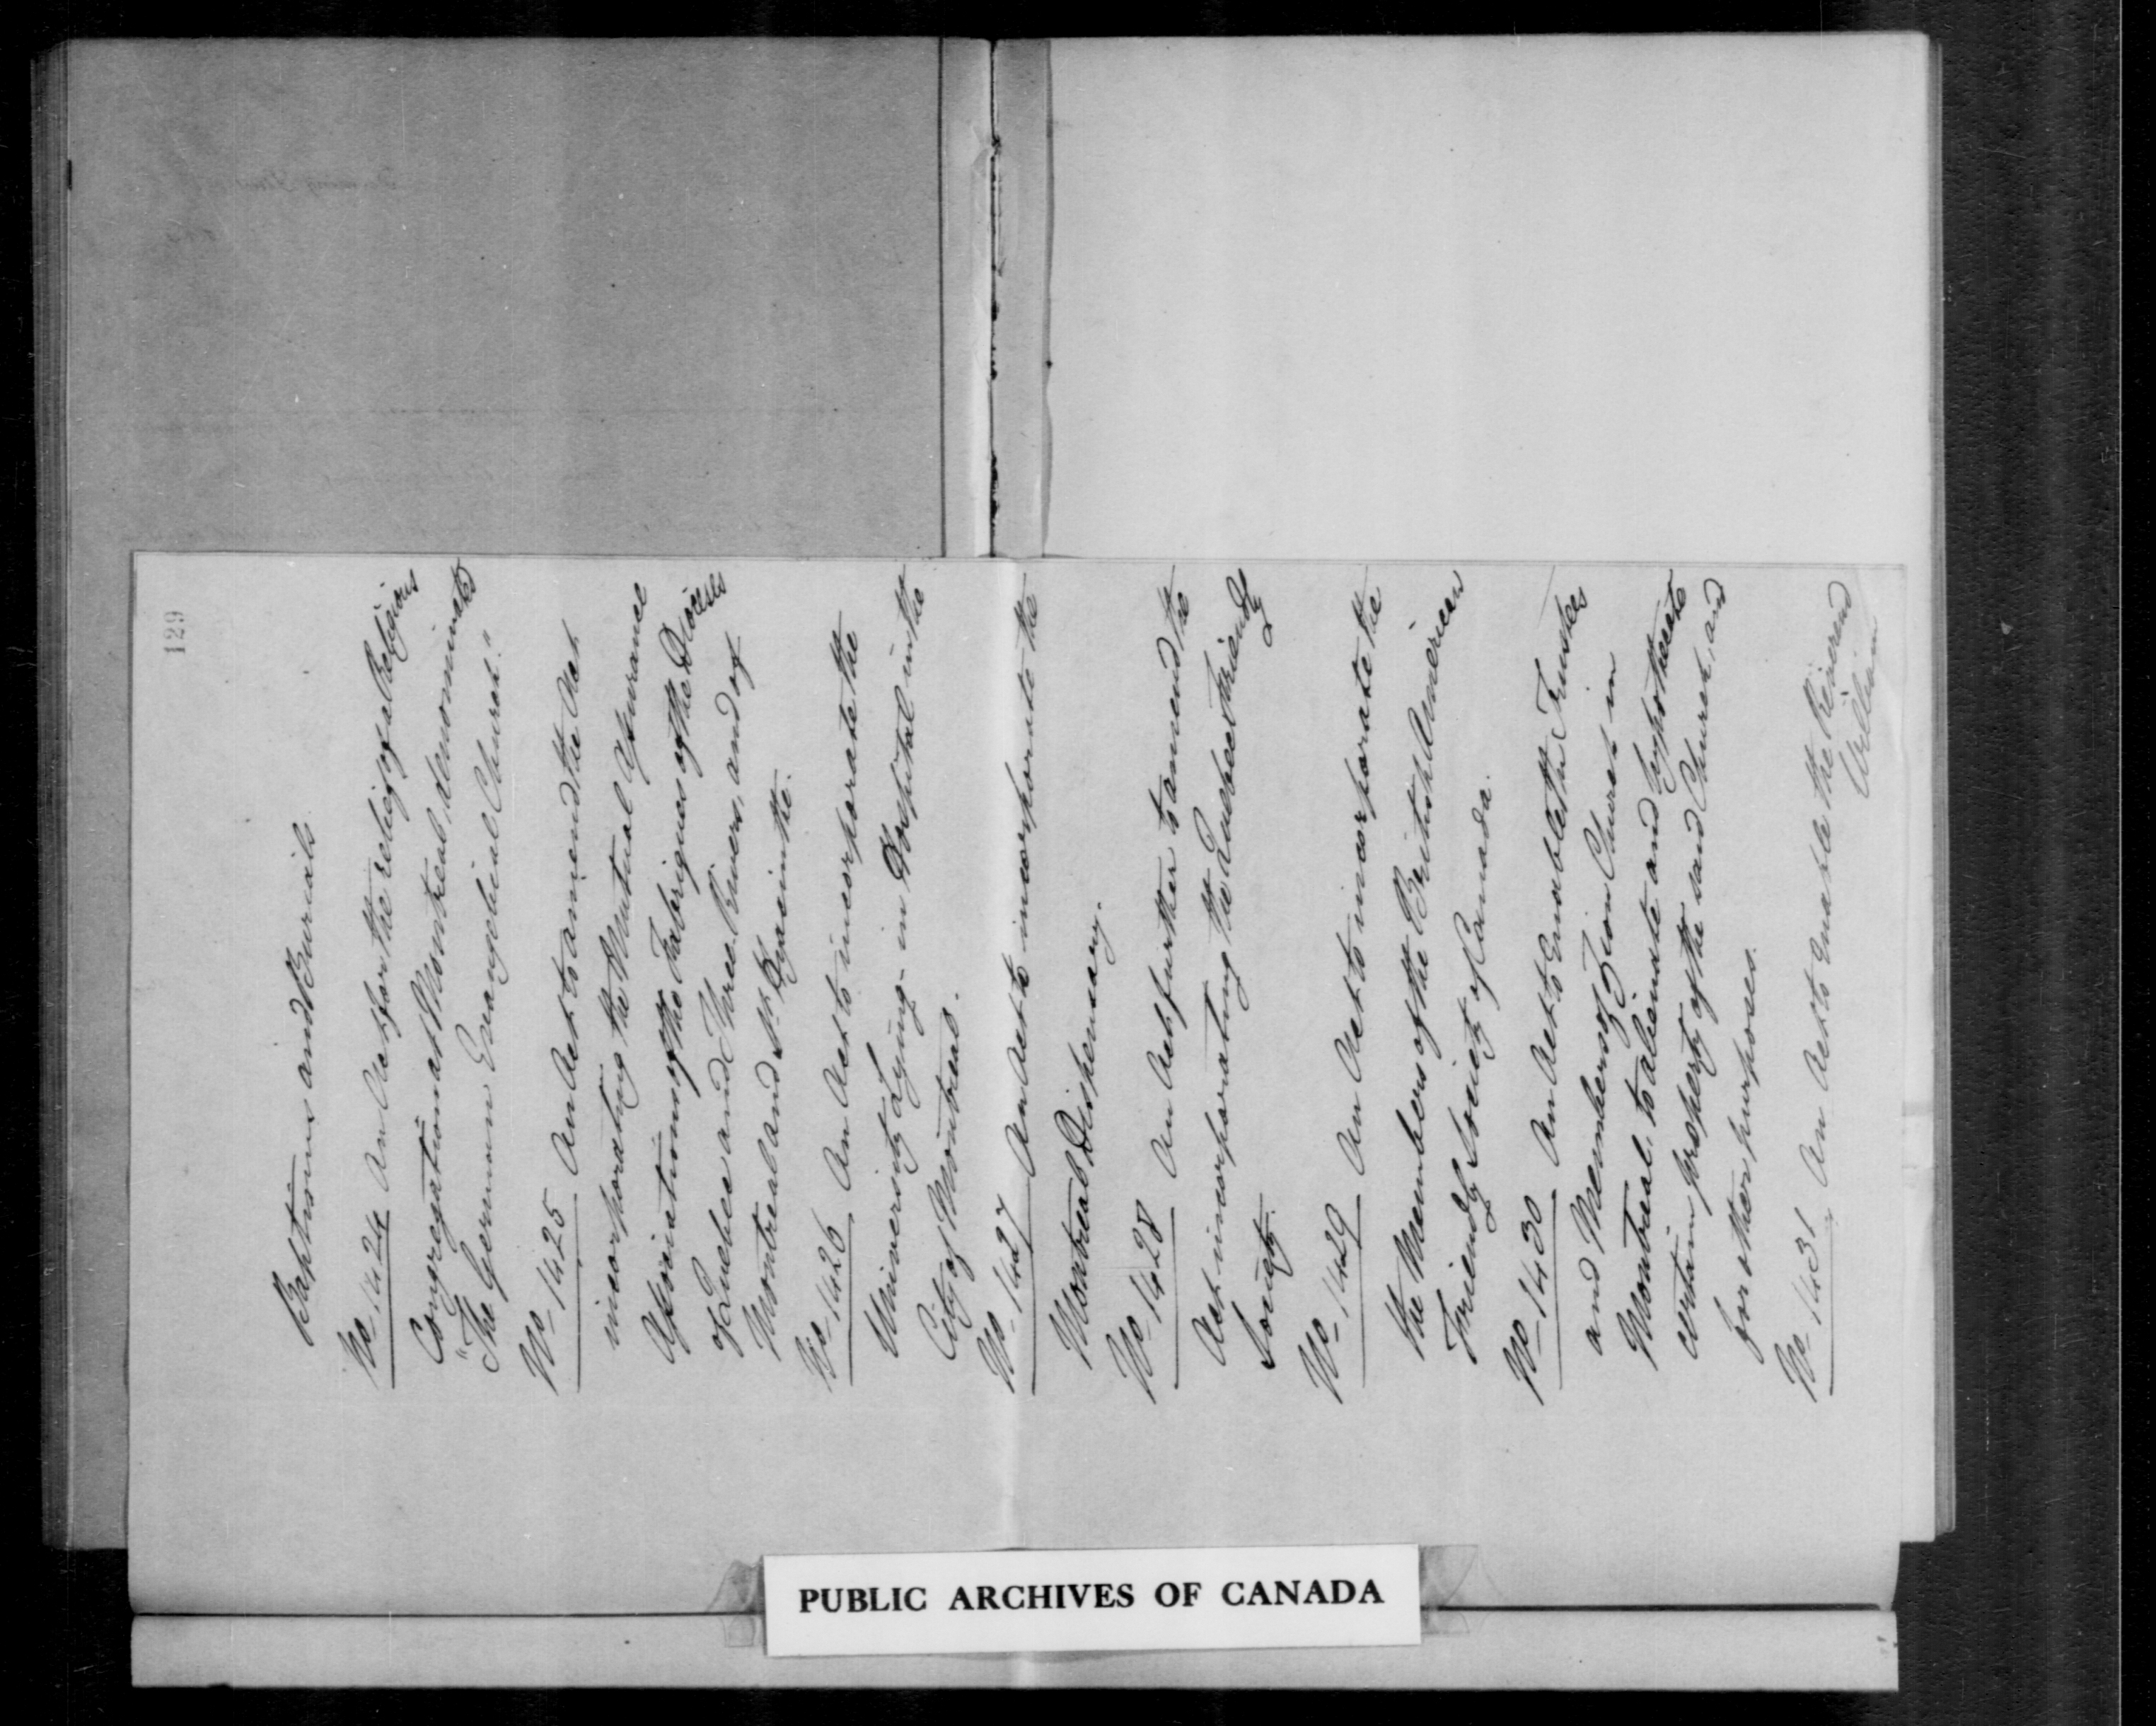 129
Baptisms and Burials.
No. 1424 An Act for the relief of a Religious
Congregation at Montreal, denominated
"The German Evangelical Church."
No. 1425 An Act to amend the Act
incorporating the Mutual Assurance
Associations of the Fabriques of the Dioceses
of Quebec and Three Rivers, and of
Montreal and St. Hyacinthe.
No. 1426 An Act to incorporate the
University Lying-in Hospital in the
City of Montreal.
No. 1427 An Act to incorporate the
Montreal Dispensary.
No. 1428 An Act further to amend the
Act incorporating the Quebec Friendly
Society.
No. 1429 An Act to incorporate the
the Members of the British American
Friendly Society of Canada.
No. 1430 An Act to Enable the Trustees
and Members of Zion Church in
Montreal, to alienate and hypothecate
certain property of the said Church, and
for other purposes.
No. 1431 An Act to Enable the Reverend
William
PUBLIC ARCHIVES OF CANADA